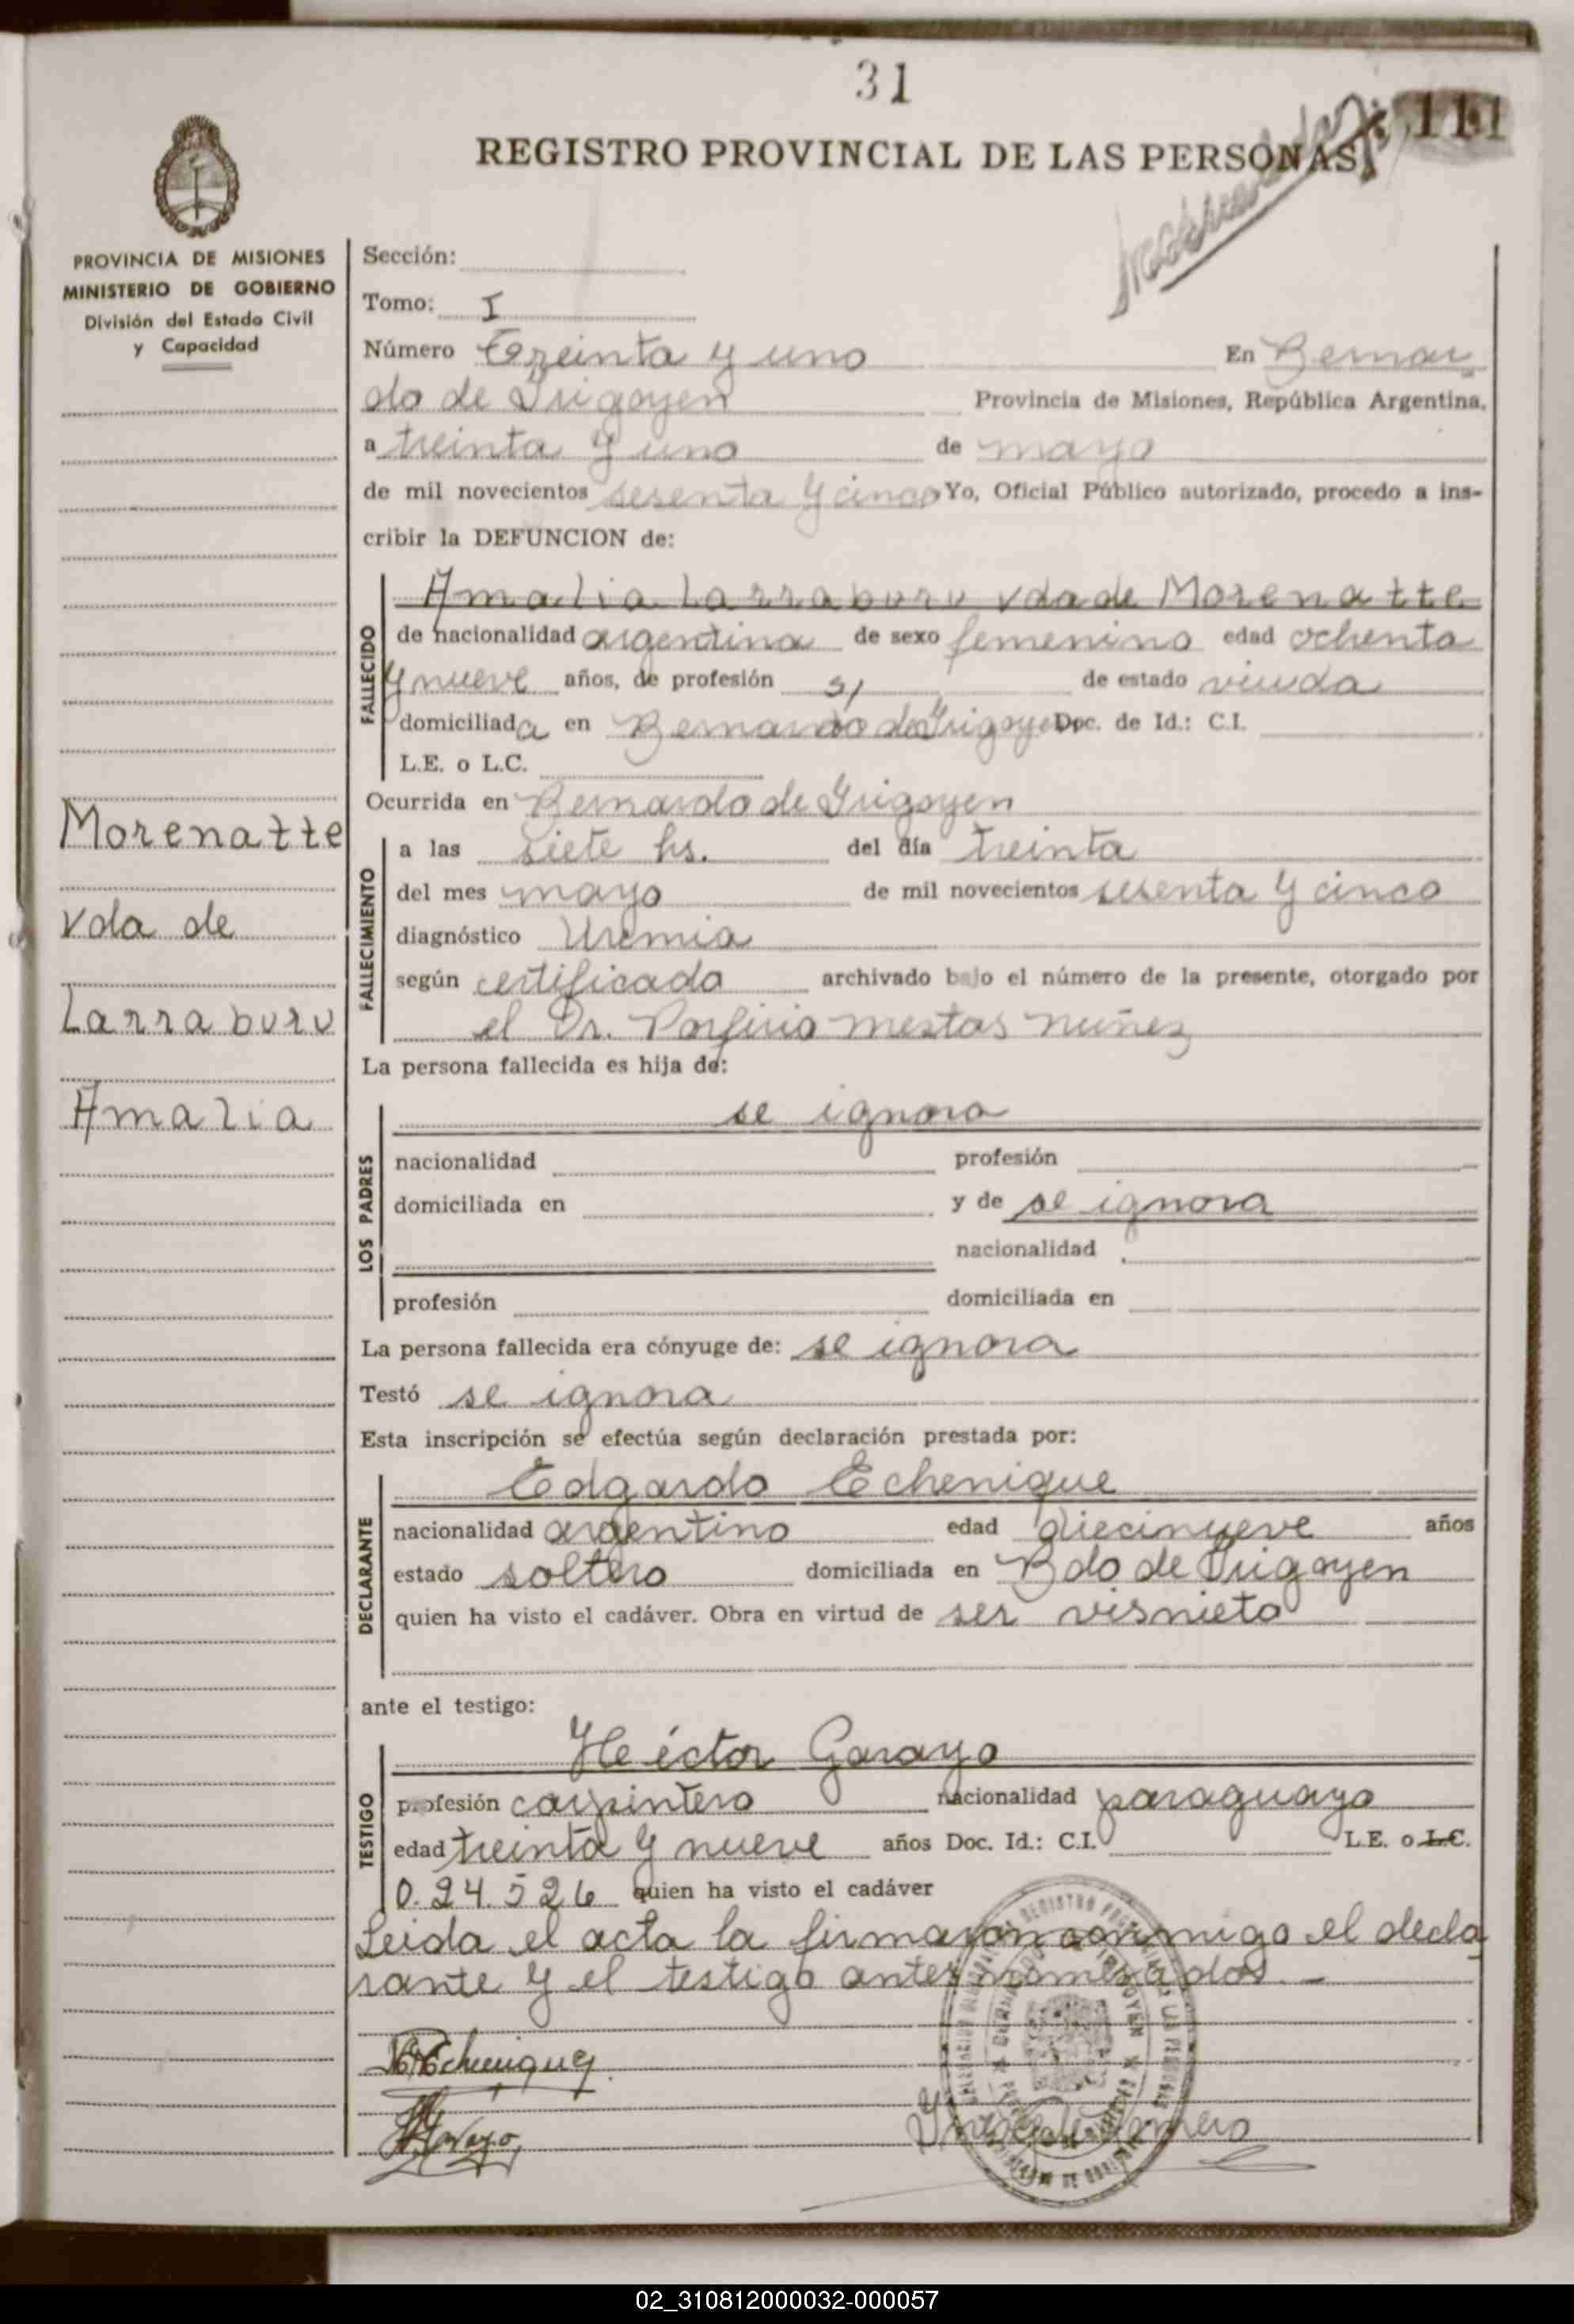 31
111
REGISTRO PROVINCIAL DE LAS PERSONAS
PROVINCIA DE MISIONES
MINISTERIO DE GOBIERNO
División del Estado Civil
y Capacidad
Sección:
Tomo: I
Número Treinta y uno En Bernar
do de Irigoyen Provincia de Misiones, República Argentina,
a treinta y uno de mayo
de mil novecientos sesenta y cinco Yo, Oficial Público autorizado, procedo a ins-
cribir la DEFUNCION de:
FALLECIDO
Amalia Larraburu vda de Morenatte
de nacionalidad argentina de sexo femenino edad ochenta
y nueve años, de profesión s/ de estado viuda
domiciliada en Bernardo de Irigoyen Doc. de Id.: C.I.
L.E. o L.C.
Ocurrida en Bernardo de Irigoyen
Morenatte
vda de
Larraburu
Amalia
FALLECIMIENTO
a las siete hs. del día treinta
del mes mayo de mil novecientos sesenta y cinco
diagnóstico Uremia
según certificado archivado bajo el número de la presente, otorgado por
el Dr. Porfirio mestas nuñez
La persona fallecida es hija de:
LOS PADRES
se ignora
nacionalidad profesión
domiciliada en y de se ignora
nacionalidad
profesión domiciliada en
La persona fallecida era cónyuge de: se ignora
Testó se ignora
Esta inscripción se efectúa según declaración prestada por:
DECLARANTE
Edgardo Echenique
nacionalidad argentino edad diecinueve años
estado soltero domiciliada en Bdo de Irigoyen
quien ha visto el cadáver. Obra en virtud de ser visnieto
ante el testigo:
TESTIGO
Héctor Garayo
profesión carpintero nacionalidad paraguayo
edad treinta y nueve años Doc. Id.: C.I. L.E. o L.C.
0.24.526 quien ha visto el cadáver
Leida el acta la firmaron conmigo el decla
rante y el testigo antes nombrados.-
Echenique
Garayo
02_310812000032-000057